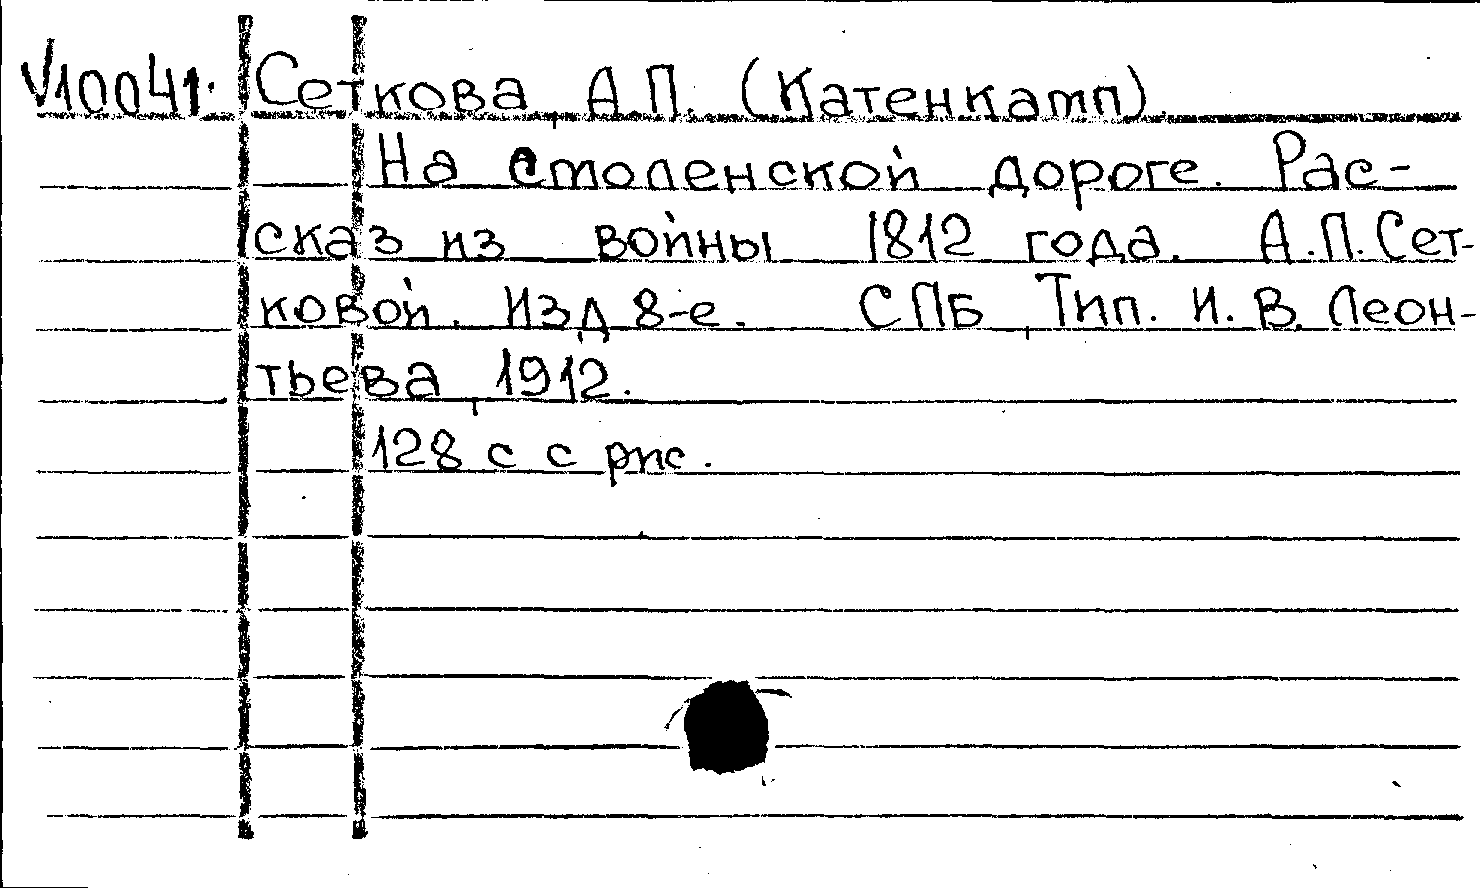 V10041. Сеткова, А.П. (Катенкамп).
На смоленской дороге. Рас-
сказ из войны 1812 года. А.П. Сет-
ковой. Изд 8-е. СПБ, Тип. И. В. Леон-
тьева, 1912.
128 с с рис.